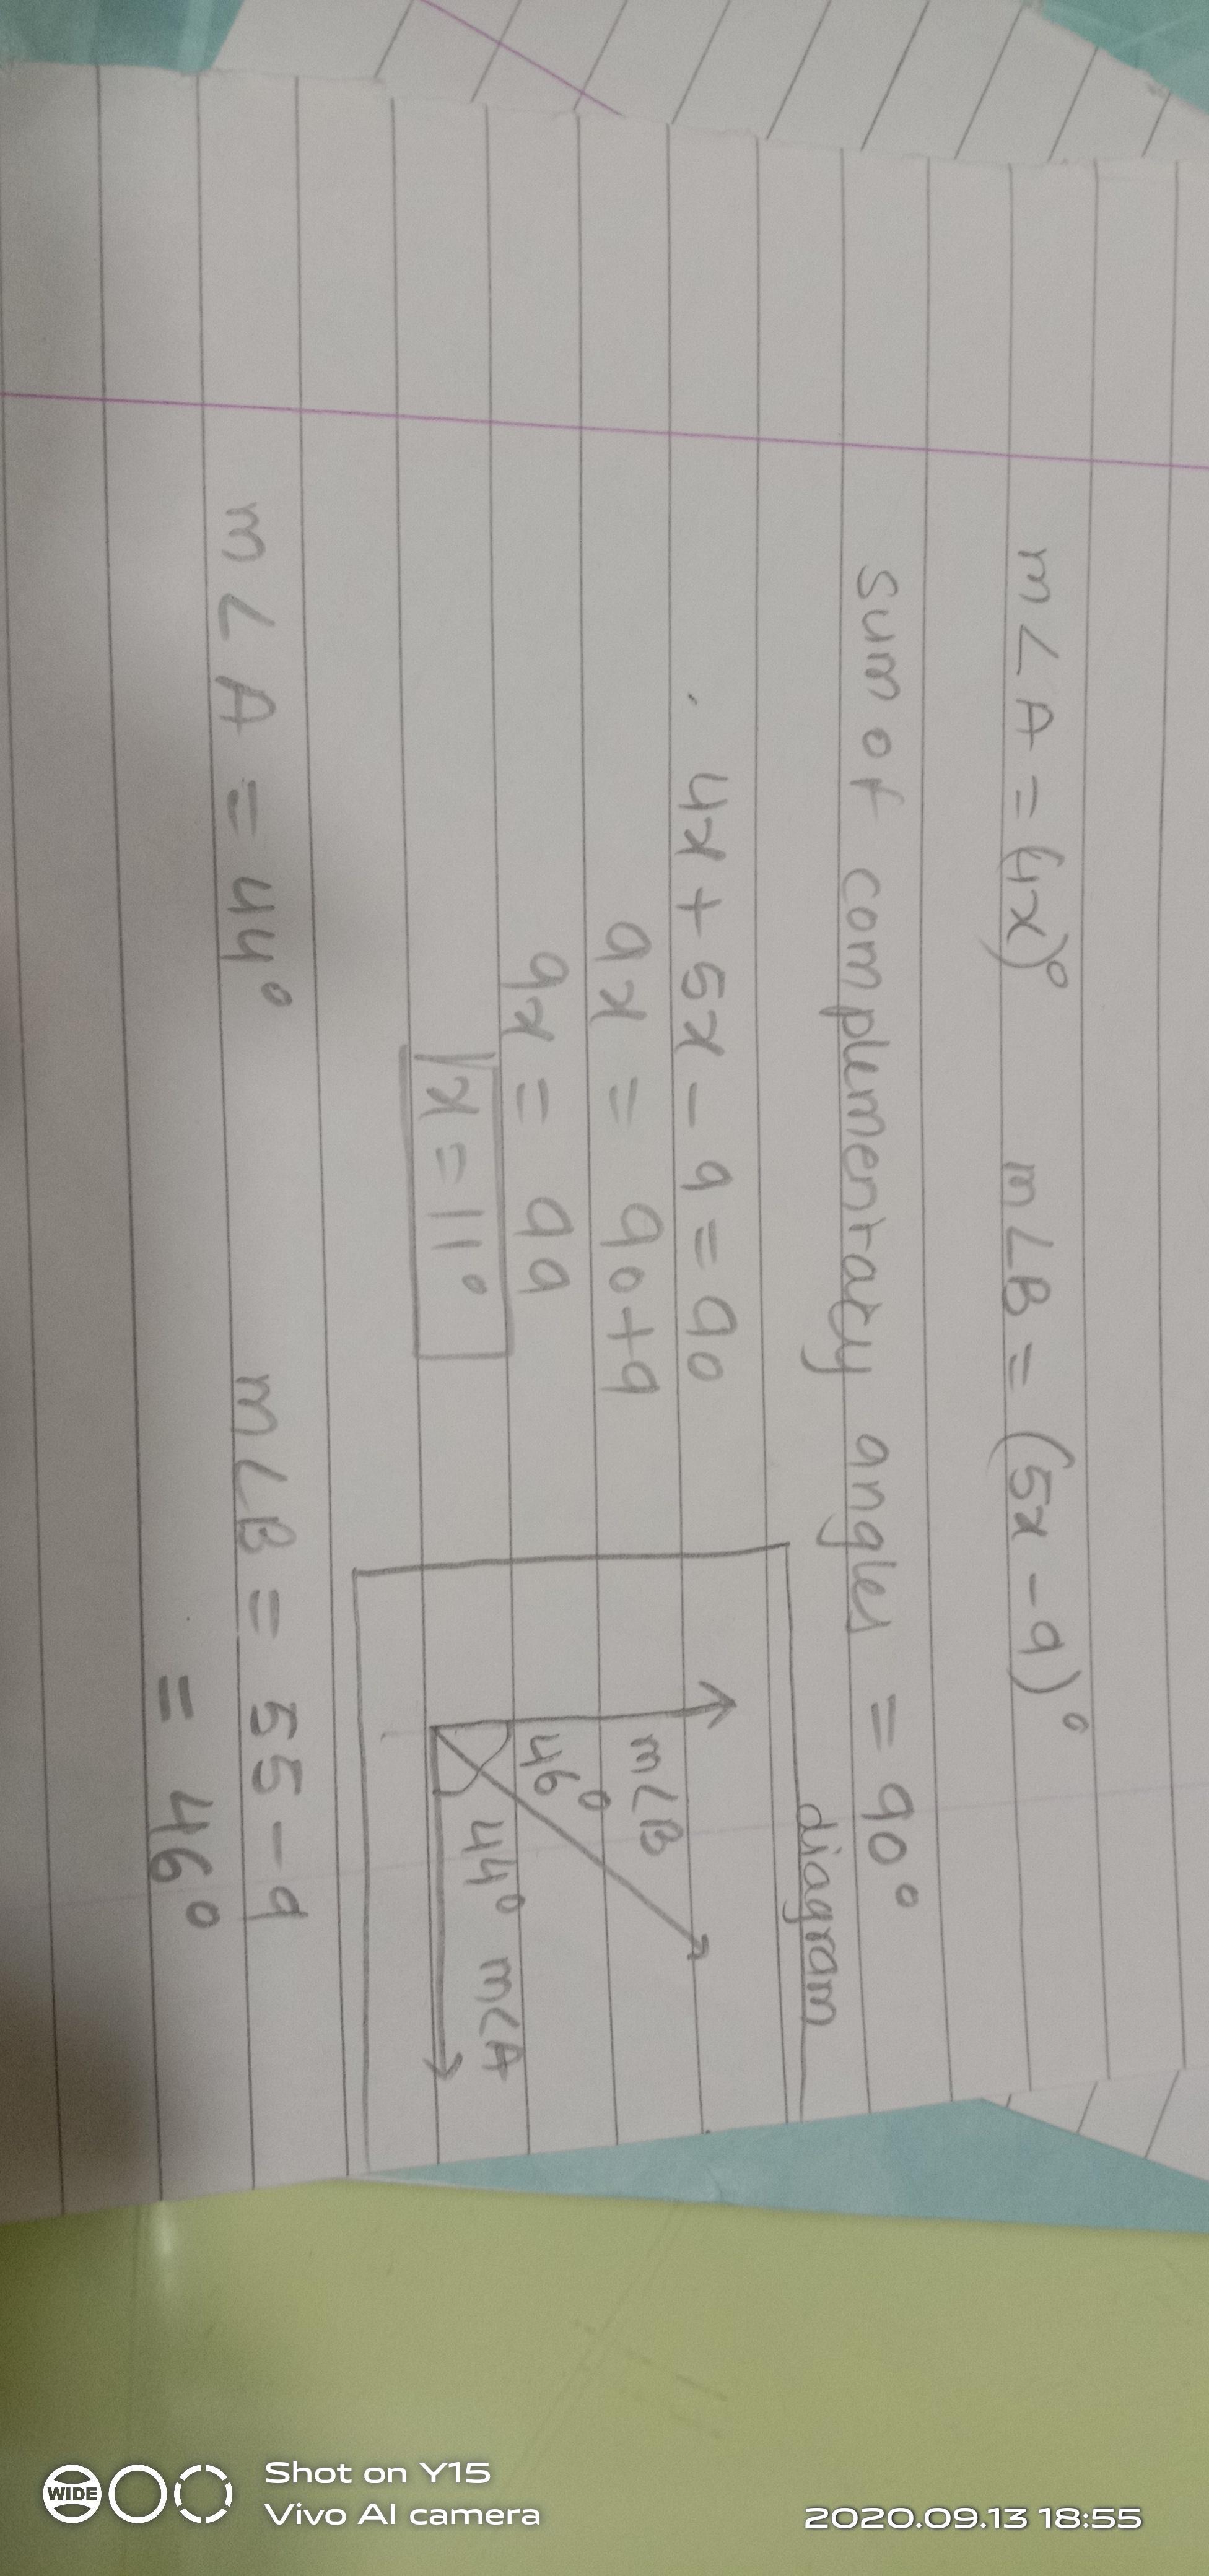 m∠A = (4x)° m∠B = (5x - 9)°
sum of complementary angles = 90°
4x + 5x - 9 = 90
9x = 90+9
9x = 99
x = 11°
diagram
m∠B
46°
44° m∠A
m∠A = 44° m∠B = 55 - 9
= 46°
WIDE
Shot on Y15
Vivo AI camera
2020.09.13 18:55